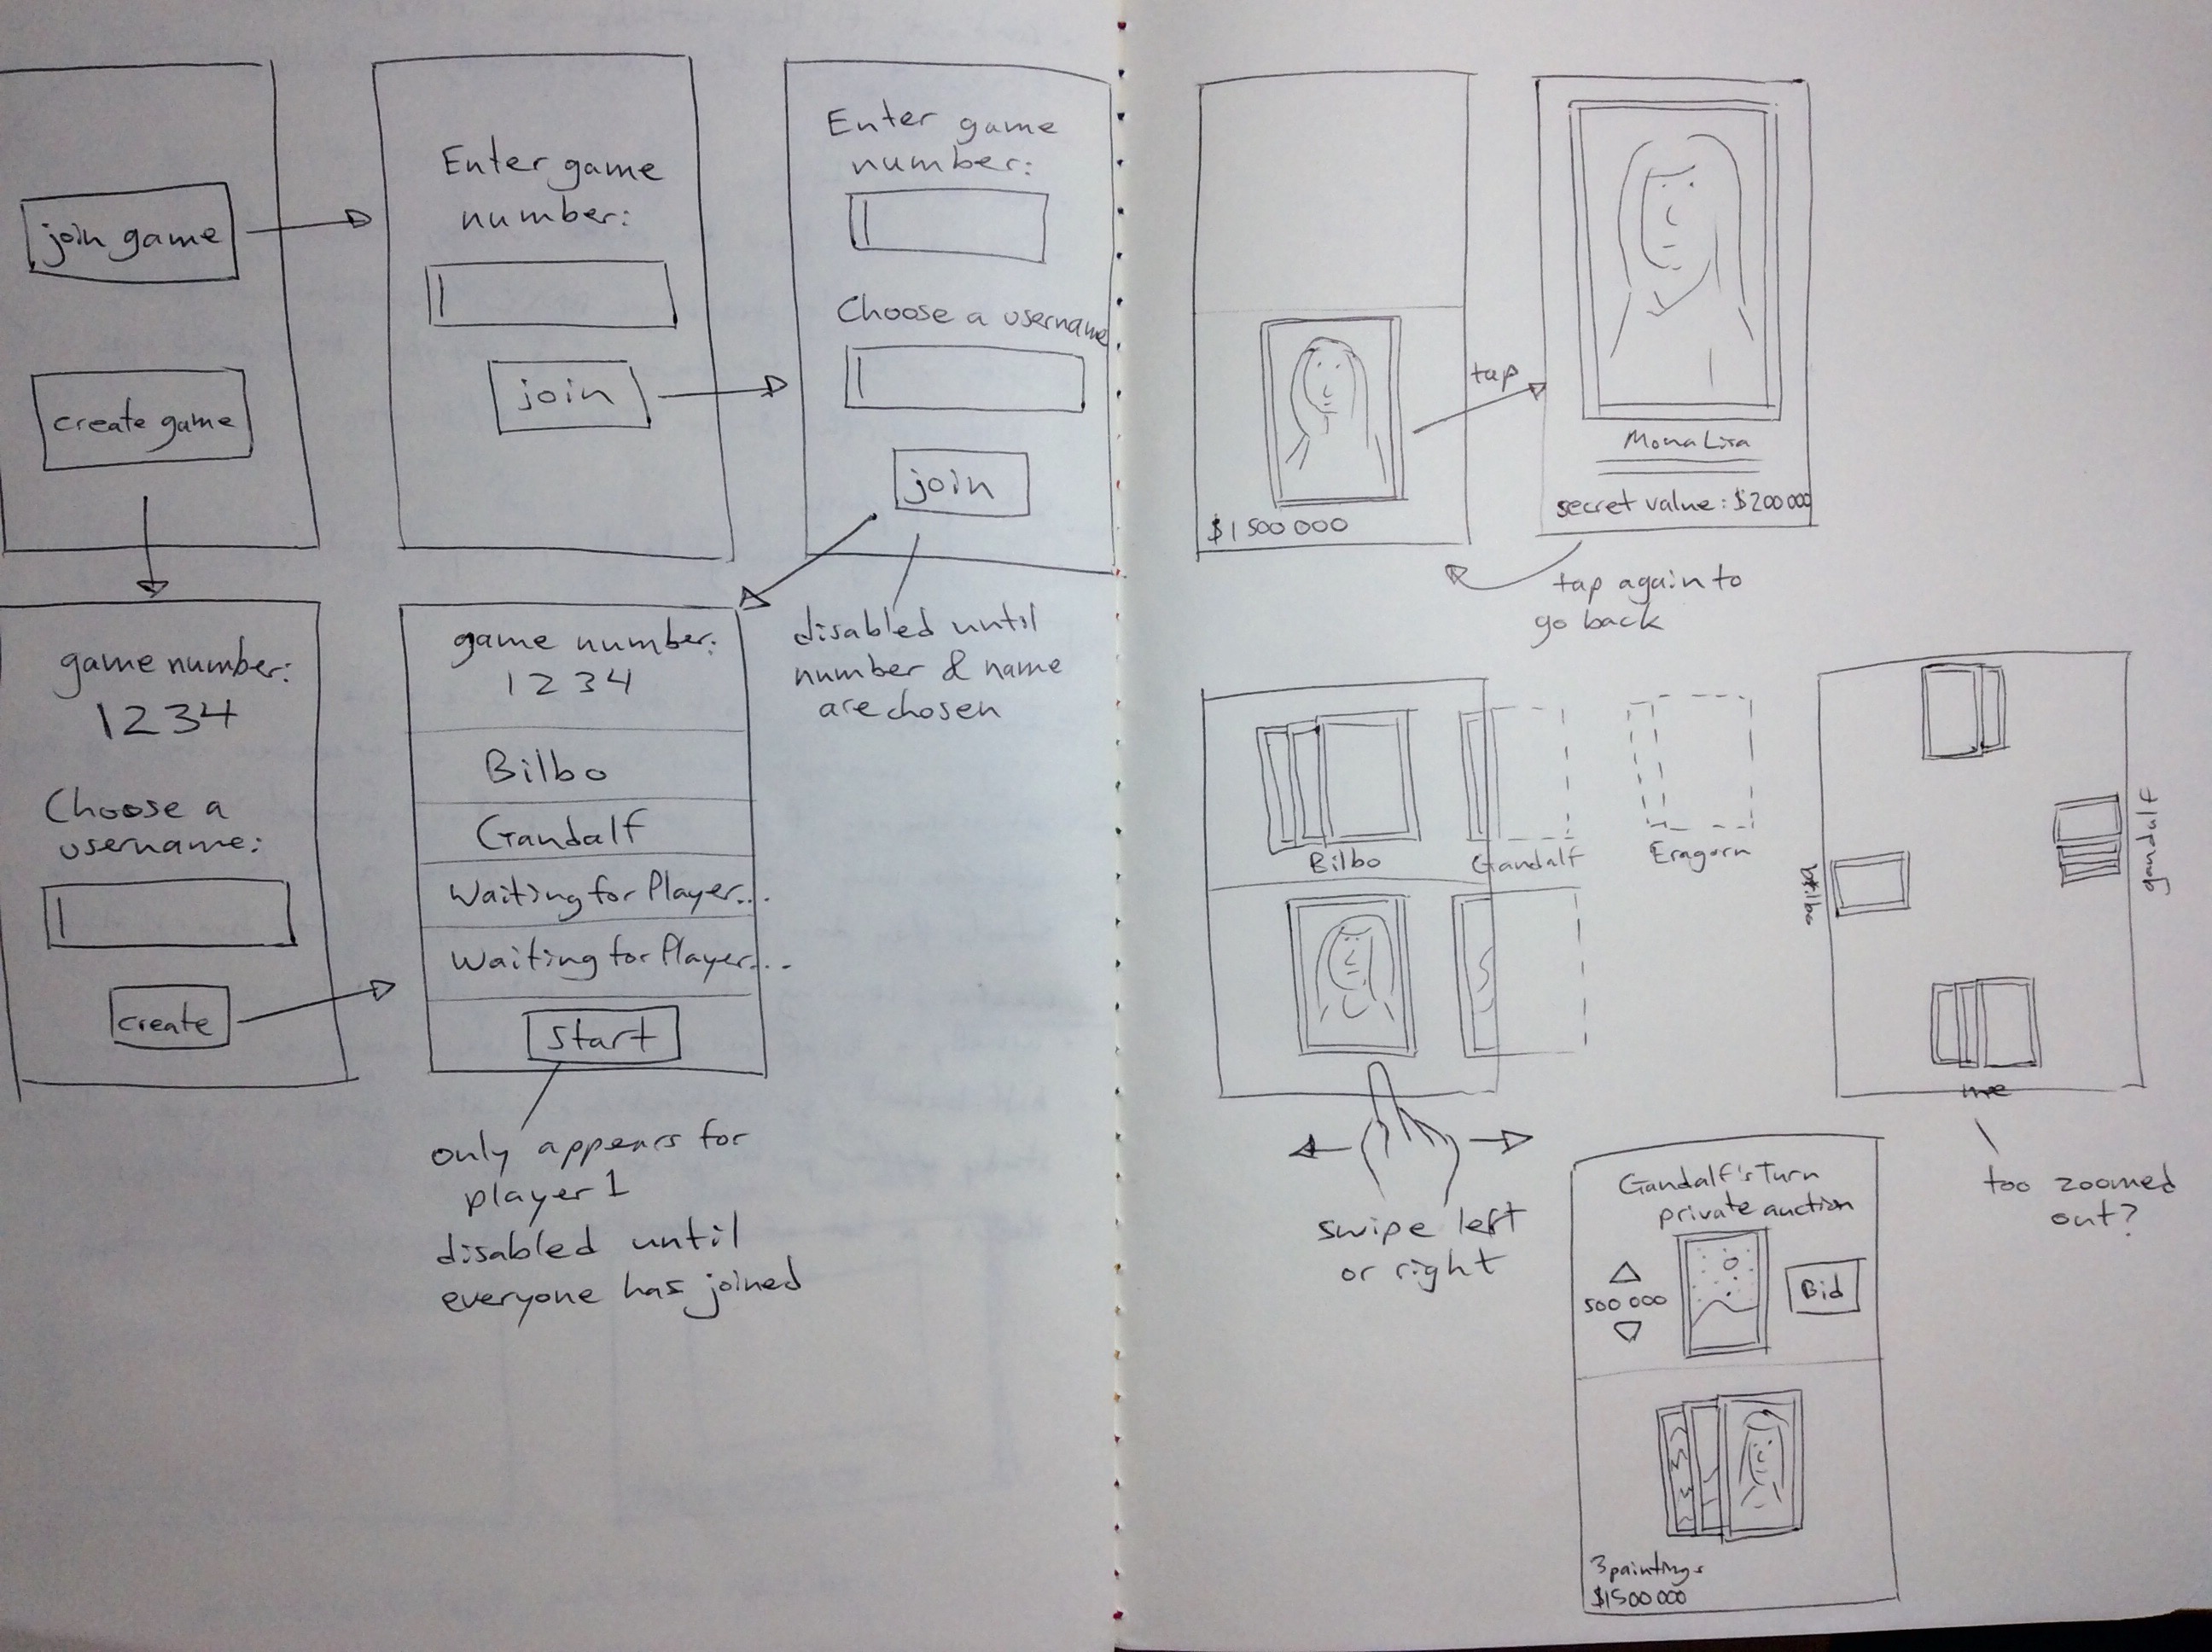 join game
create game
Enter game
number:
join
Enter game
number:
Choose a username
join
disabled until
number & name
are chosen
game number:
1234
Choose a
username:
create
game number:
1234
Bilbo
Gandalf
Waiting for Player...
Waiting for Player...
start
only appears for
player 1
disabled until
everyone has joined
$1 500 000
tap
Mona Lisa
secret value: $200 000
tap again to
go back
Bilbo
Gandalf
Eragorn
swipe left
or right
bilbo
gandulf
me
too zoomed
out?
Gandalf's Turn
private auction
500 000
Bid
3 paintings
$1500 000